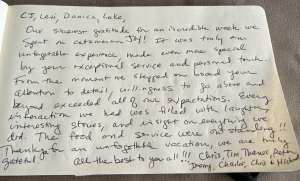 CJ, Lexi, Danica, Luke,
Our sincerest gratitude for an incredible week we
spent on catamaran It was truly an
unforgettable experience, made even more special
by your exceptional service and personal touch.
From the moment we stepped on board your
attention to detail, willingness to go above and
beyond exceeded all of our expectations. Every
interaction we had was filled with laughter,
interesting stories, and insight on everything we
did. The food and service were outstanding!!
Thank you for an unforgettable vacation, we are truly
grateful. All the best to you all!!! Chris, Tim, Theresa,
Jeremy, Charlie, Chris &